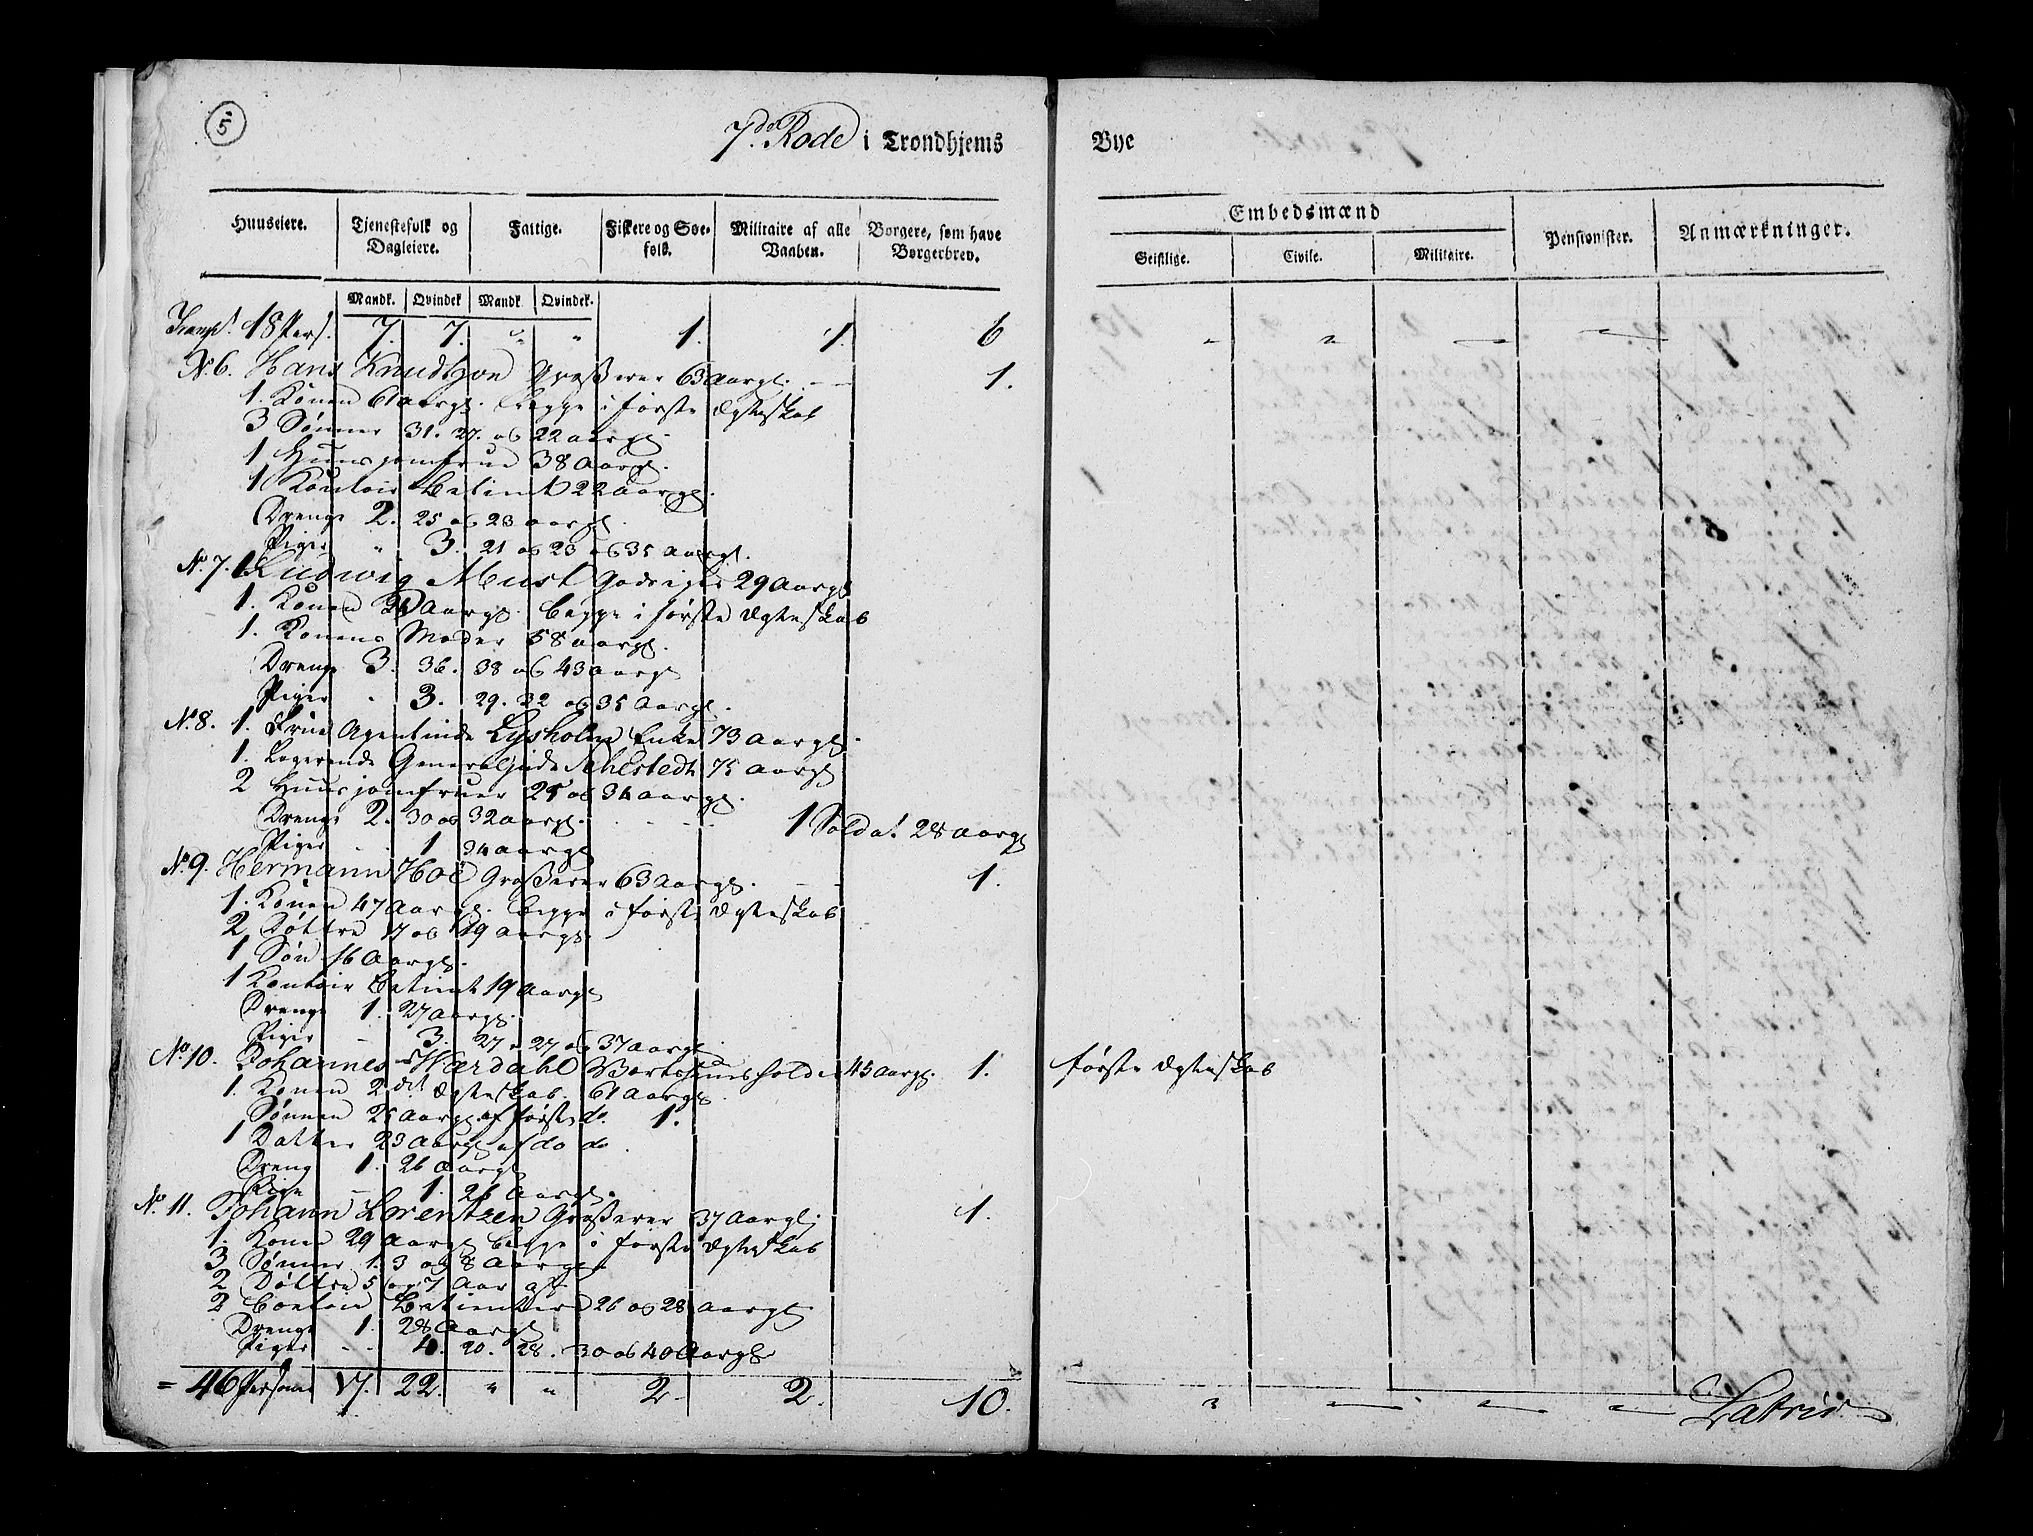 5
7de Rode i Trondhjems Bye
Huuseiere. Tjenestefolk og Dagleiere. Fattige. Fiskere og Søefolk. Militaire af alle Vaaben. Borgere, som have Borgerbrev. Embedsmænd Pensionister. Anmærkninger.
Geistlige. Civile. Militaire.
Mandk. Qvindek Mandk Qvindek.
Transpt. 18 Pers. 7. 7. " " 1. 1. 6
No. 6. Hans Knudtzon Grosserer 63 Aargl. 1.
1. Konen 61 aargl. begge i første Ægteskab
3 Sønner 31. 27. og 22 aargl.
1 Huusjomfrue 38 Aargl.
1 Kontoir Betient 22 aargl.
Drenge 2. 25 og 23 aargl.
Piger " 3. 21 og 23 og 35 Aargl.
No. 7. 1. Ludwig Must Godseier 29 Aargl
1. Konen Aargl. begge i første Ægteskab
1. Konens Moder 58 aargl.
Drenge 3. 36. 38 og 43 aargl
Piger " 3. 29. 32 og 35 Aargl.
No. 8. 1. Frue Agentinde Lysholm Enke 73 Aargl.
1. Logerende Generalinde Schestedt 75 aargl
2 Huusjomfruer 25 og 34 aargl.
Drenge 2. 30 og 32 aargl. 1 Soldat 28 aargl
Piger 1 34 aargl
No. 9. Hermann Hoë Grosserer 63 Aargl. 1.
1. Konen 47 Aargl. begge i første Ægteskab
2 Døttre 17 og 19 aargl.
1 Søn 16 Aargl.
1 Kontoir Betient 19 Aargl
Drenge 1. 27 Aargl.
Piger 3. 27. 27 og 37 aargl
No. 10. Johannes Hærdahl Værtshuusholder 45 Aargl. 1. første Ægteskab
1. Konen 2det Ægteskab. 61 Aargl.
Sønnen 25 Aargl. af første do. 1.
1 Datter 23 Aargl. af do do
Dreng 1. 26 Aargl
Pige 1. 26 Aargl.
No. 11. Johann Lorentzen Grosserer 37 Aargl; 1.
1. Kone 29 Aargl begge i første Ægteskab
3 Sønner 1. 3 og 8 Aargl
2 Døttre 5 og 7 Aar gl.
2 Contoir Betienter 26 og 28 Aargl.
Drenge 1. 28 Aargl
Piger 4. 20. 28. 30 og 40 Aargl
= 46 Personer 17. 22. " " 2. 2. 10. Latris